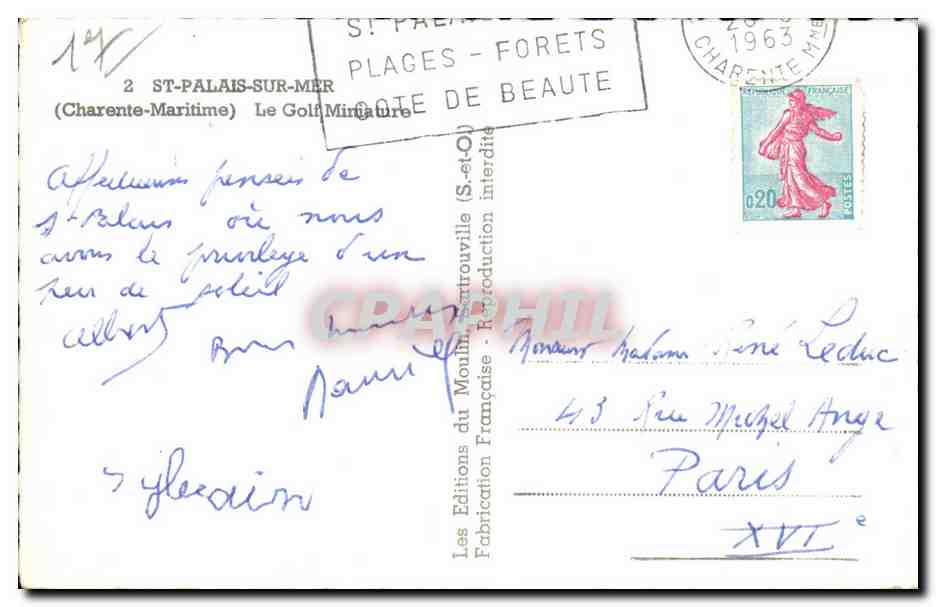 17
ST PALAIS
PLAGES - FORETS
COTE DE BEAUTE
1963
CHARENTE MME
2 ST-PALAIS-SUR-MER
(Charente-Maritime) Le Golf Miniature
REPUBLIQUE FRANÇAISE
0,20
POSTES
Affectueuses pensées de
St-Palais où nous
avons le privilège d'un
peu de soleil
Albert
Bons
Les Editions du Moulin, Sartrouville (S.-et-O.)
Fabrication Française - Reproduction interdite
CPAPHIL
Monsieur Madame René Leduc
43 Rue Michel Ange
Paris
XVIe